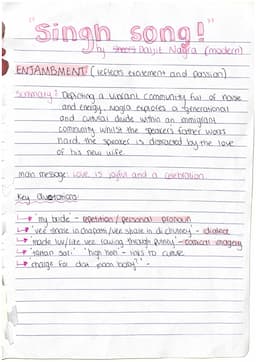 "Singh song!"
by Daljit Nagra (modern)
ENJAMBMENT (reflects excitement and passion)
summary: Depicting a vibrant community full of noise
and energy, Nagra explores a generational
and cultural divide within an immigrant
community whilst the speaker's father works
hard, the speaker is distracted by the love
of his new wife.
main message: love is joyful and a celebration.
Key Quotations:
'my bride' - repetition / personal pronoun
'vee share in chapatti / vee share in di chutney' - dialect
'made luv / like vee rowing through putney' - comical imagery
'tartan sari' 'high heel - links to culture
charge for dat moon baby?' -